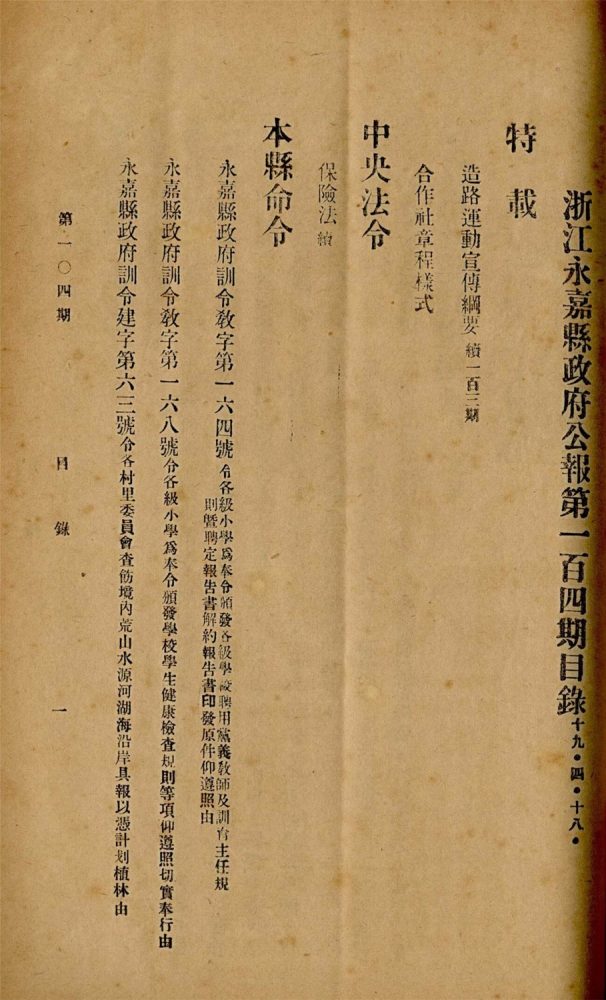 浙江永嘉縣政府公報第一百四期目錄 十九•四•十八•
特載
造路運動宣傳綱要 續一百三期
合作社章程樣式
中央法令
保險法 續
本縣命令
永嘉縣政府訓令教字第一六四號 令各級小學爲奉令頒發各級學校聘用黨義教師及訓育主任規
則暨聘定報告書解約報告書印發原件仰遵照由
永嘉縣政府訓令教字第一六八號 令各級小學爲奉令頒發學校學生健康檢查規則等項仰遵照切實奉行由
永嘉縣政府訓令建字第六三號 令各村里委員會查飭境內荒山水源河湖海沿岸具報以憑計划植林由
第一〇四期 目錄 一